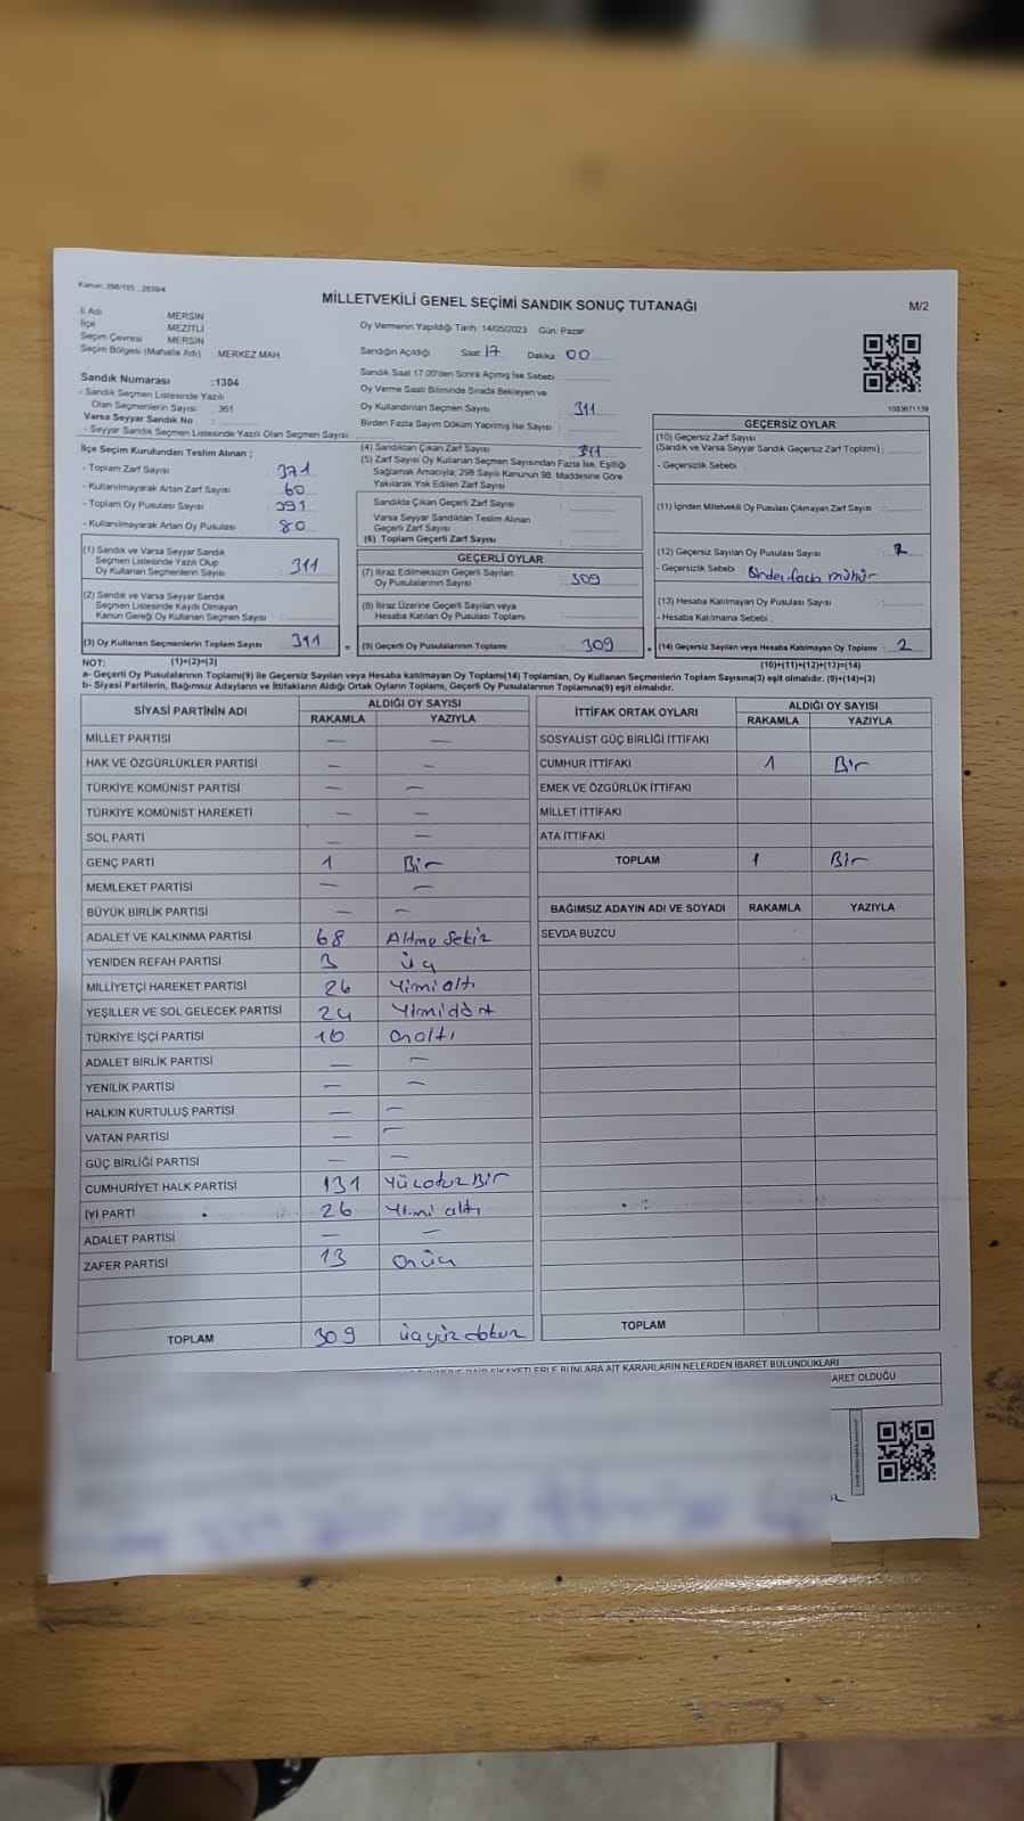 MİLLETVEKİLİ GENEL SEÇİMİ SANDIK SONUÇ TUTANAĞI
M/2
İl Adı MERSİN
İlçe MEZİTLİ
Seçim Çevresi MERSİN
Seçim Bölgesi (Mahalle Adı) : MERKEZ MAH.
Sandık Numarası :1304
- Sandık Seçmen Listesinde Yazılı
Olan Seçmenlerin Sayısı : 361
Varsa Seyyar Sandık No :
- Seyyar Sandık Seçmen Listesinde Yazılı Olan Seçmen Sayısı
Oy Vermenin Yapıldığı Tarih: 14/05/2023 Gün: Pazar
Sandığın Açıldığı Saat 17 Dakika 00
Sandık Saat 17.00'den Sonra Açılmış İse Sebebi
Oy Verme Saati Bitiminde Sırada Bekleyen ve
Oy Kullandırılan Seçmen Sayısı 311
Birden Fazla Sayım Döküm Yapılmış İse Sayısı
İlçe Seçim Kurulundan Teslim Alınan ;
- Toplam Zarf Sayısı 371
- Kullanılmayarak Artan Zarf Sayısı 60
- Toplam Oy Pusulası Sayısı 391
- Kullanılmayarak Artan Oy Pusulası 80
(1) Sandık ve Varsa Seyyar Sandık
Seçmen Listesinde Yazılı Olup
Oy Kullanan Seçmenlerin Sayısı 311
(2) Sandık ve Varsa Seyyar Sandık
Seçmen Listesinde Kayıtlı Olmayan
Kanun Gereği Oy Kullanan Seçmen Sayısı
(3) Oy Kullanan Seçmenlerin Toplam Sayısı 311
(4) Sandıktan Çıkan Zarf Sayısı 311
(5) Zarf Sayısı Oy Kullanan Seçmen Sayısından Fazla İse, Eşitliği
Sağlamak Amacıyla, 298 Sayılı Kanunun 98. Maddesine Göre
Yakılarak Yok Edilen Zarf Sayısı
Sandıkta Çıkan Geçerli Zarf Sayısı
Varsa Seyyar Sandıktan Teslim Alınan
Geçerli Zarf Sayısı
(6) Toplam Geçerli Zarf Sayısı
GEÇERLİ OYLAR
(7) İtiraz Edilmeksizin Geçerli Sayılan
Oy Pusulalarının Sayısı 309
(8) İtiraz Üzerine Geçerli Sayılan veya
Hesaba Katılan Oy Pusulası Toplamı
= (9) Geçerli Oy Pusulalarının Toplamı 309
GEÇERSİZ OYLAR
(10) Geçersiz Zarf Sayısı
(Sandık ve Varsa Seyyar Sandık Geçersiz Zarf Toplamı) :
- Geçersizlik Sebebi
(11) İçinden Milletvekili Oy Pusulası Çıkmayan Zarf Sayısı
(12) Geçersiz Sayılan Oy Pusulası Sayısı 2
- Geçersizlik Sebebi Birden fazla mühür
(13) Hesaba Katılmayan Oy Pusulası Sayısı
- Hesaba Katılmama Sebebi :
(14) Geçersiz Sayılan veya Hesaba Katılmayan Oy Toplamı 2
NOT: (1)+(2)=(3) (10)+(11)+(12)+(13)=(14)
a- Geçerli Oy Pusulalarının Toplamı(9) ile Geçersiz Sayılan veya Hesaba katılmayan Oy Toplamı(14) Toplamları, Oy Kullanan Seçmenlerin Toplam Sayısına(3) eşit olmalıdır. (9)+(14)=(3)
b- Siyasi Partilerin, Bağımsız Adayların ve İttifakların Aldığı Ortak Oyların Toplamı, Geçerli Oy Pusulalarının Toplamına(9) eşit olmalıdır.
SİYASİ PARTİNİN ADI ALDIĞI OY SAYISI
RAKAMLA YAZIYLA
MİLLET PARTİSİ — —
HAK VE ÖZGÜRLÜKLER PARTİSİ — —
TÜRKİYE KOMÜNİST PARTİSİ — —
TÜRKİYE KOMÜNİST HAREKETİ — —
SOL PARTİ — —
GENÇ PARTİ 1 Bir
MEMLEKET PARTİSİ — —
BÜYÜK BİRLİK PARTİSİ — —
ADALET VE KALKINMA PARTİSİ 68 Altmış Sekiz
YENİDEN REFAH PARTİSİ 3 üç
MİLLİYETÇİ HAREKET PARTİSİ 26 Yirmi altı
YEŞİLLER VE SOL GELECEK PARTİSİ 24 Yirmi dört
TÜRKİYE İŞÇİ PARTİSİ 16 Onaltı
ADALET BİRLİK PARTİSİ — —
YENİLİK PARTİSİ — —
HALKIN KURTULUŞ PARTİSİ — —
VATAN PARTİSİ — —
GÜÇ BİRLİĞİ PARTİSİ — —
CUMHURİYET HALK PARTİSİ 131 Yüzotuz Bir
İYİ PARTİ 26 Yirmi altı
ADALET PARTİSİ — —
ZAFER PARTİSİ 13 Onüç
TOPLAM 309 üçyüz dokuz
İTTİFAK ORTAK OYLARI ALDIĞI OY SAYISI
RAKAMLA YAZIYLA
SOSYALİST GÜÇ BİRLİĞİ İTTİFAKI
CUMHUR İTTİFAKI 1 Bir
EMEK VE ÖZGÜRLÜK İTTİFAKI
MİLLET İTTİFAKI
ATA İTTİFAKI
TOPLAM 1 Bir
BAĞIMSIZ ADAYIN ADI VE SOYADI RAKAMLA YAZIYLA
SEVDA BUZCU
TOPLAM
ŞİKAYETLERLE BUNLARA AİT KARARLARIN NELERDEN İBARET BULUNDUKLARI
OLDUĞU